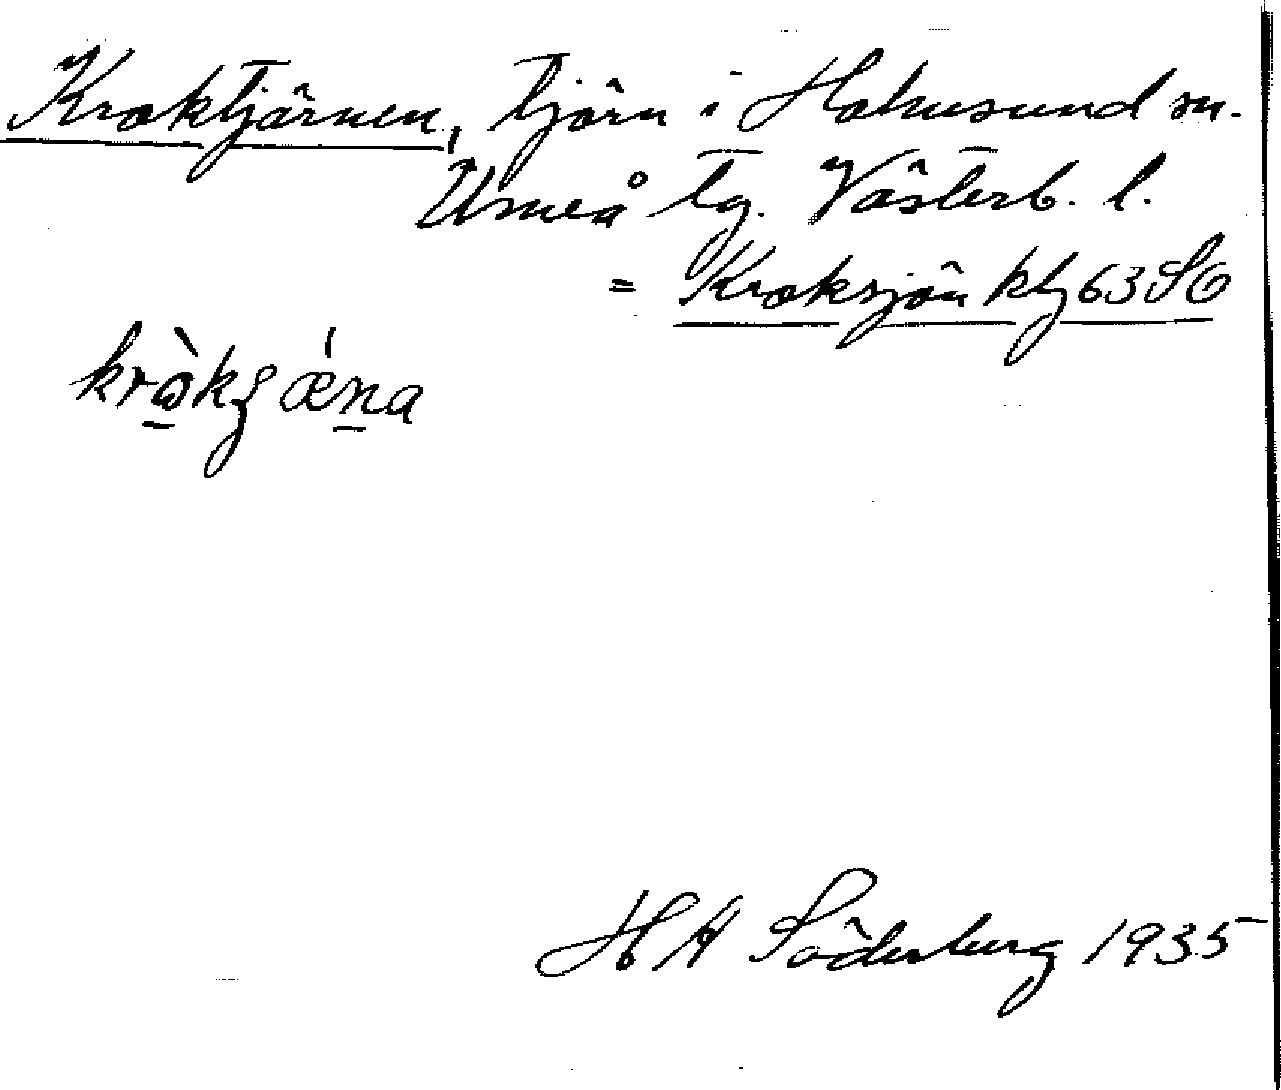 Kroktjärnen, tjärn i Holmsund sn.
Umeå tg. Västerb. l.
= Kroksjön ktj 63 SO
HA Söderberg 1935